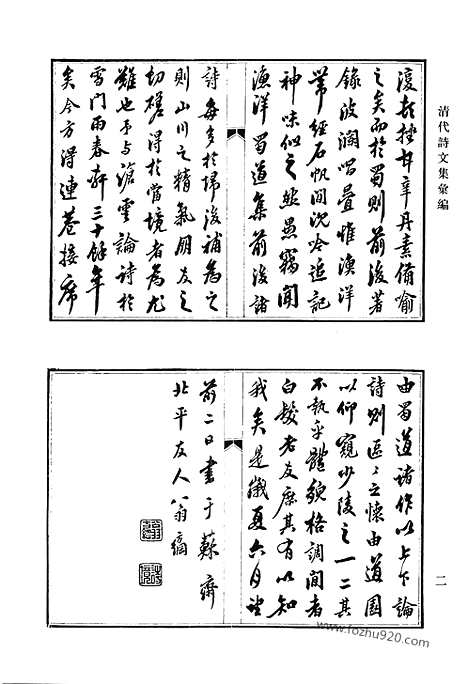 清代詩文集彙編
甘辛丹素備喻
之矣而於蜀則前後著
錄波瀾唱疊惟漁洋
帶經石帆間沈吟追記
神味似之然愚竊聞
漁洋蜀道集前後諸
詩每多於歸後補為之
則山川之精氣朋友之
切磋得於當境者為尤
難也予与滄雲論詩於
雪門雨春軒三十餘年
矣今方得連巷接席
由蜀道諸作以上下論
詩則區〻之懷由道園
以仰窺少陵之一二其
不執乎體貌格調間者
白髮老友庶其有以知
我矣是歲夏六月望
前二日書于蘇齋
北平友人
二
www.fozhu920.com